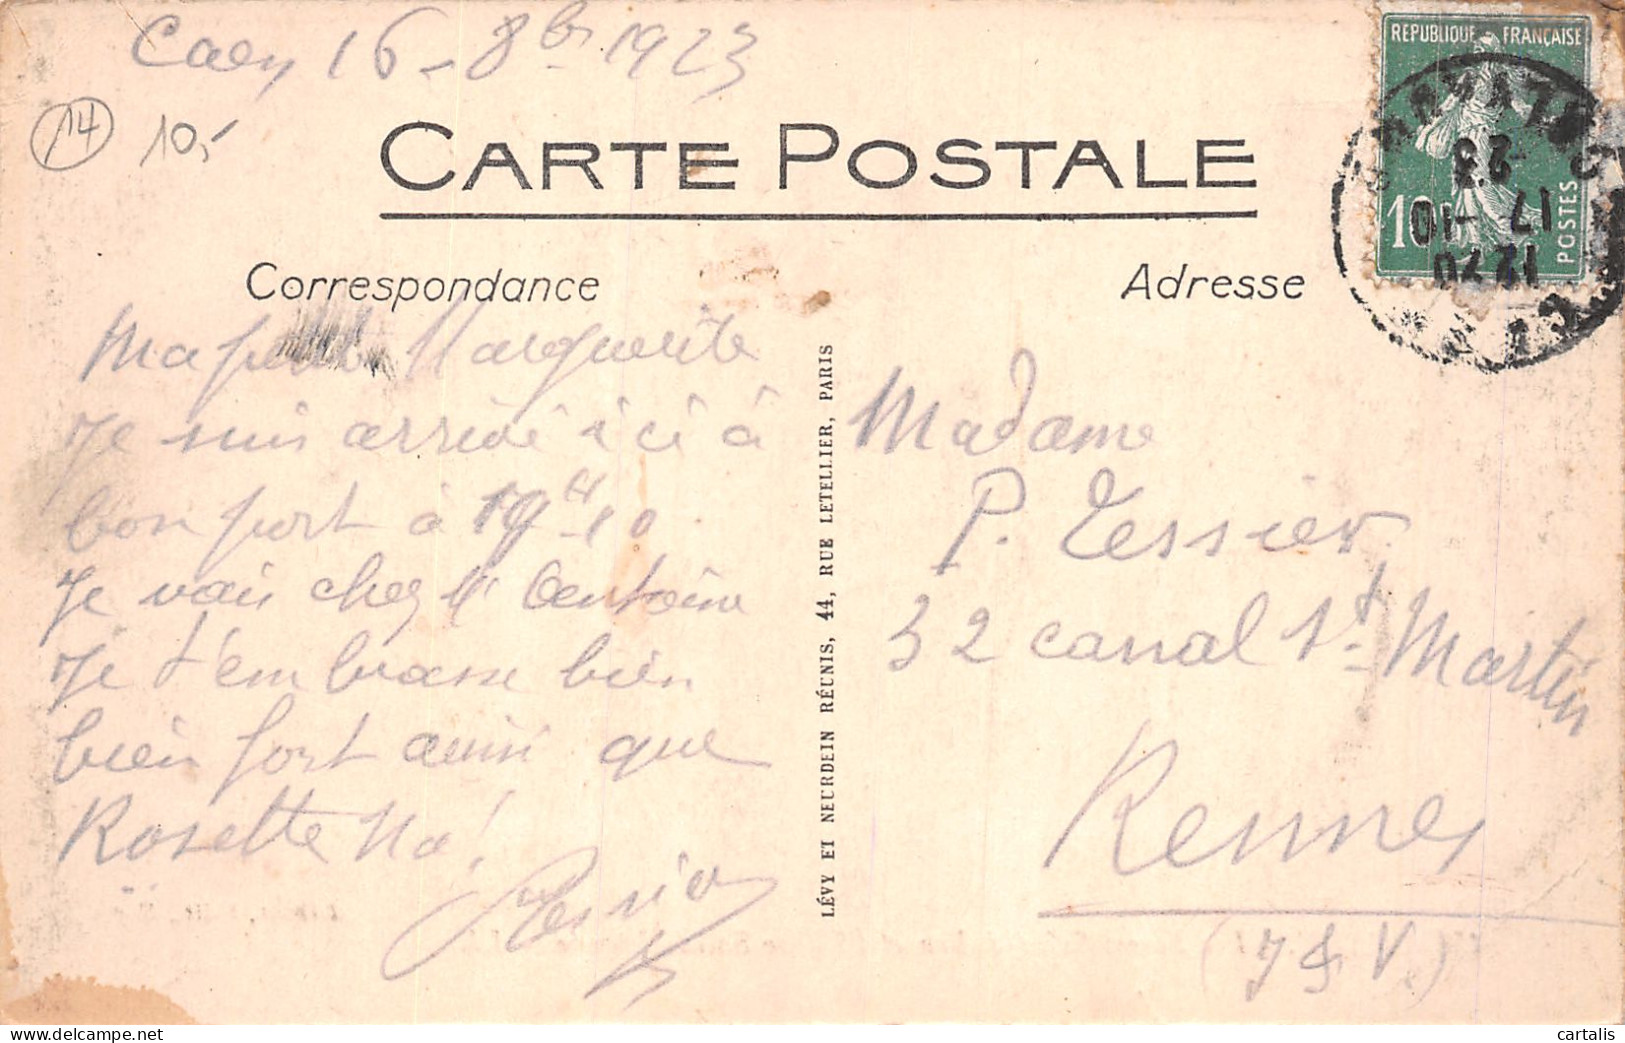 Caen 16 - 8bre 1923
14
10,-
RÉPUBLIQUE FRANÇAISE
10c
POSTES
CALVADOS
12 20
17 -10
23
CARTE POSTALE
Correspondance
Adresse
Ma petite Marguerite
Je suis arrivé ici à
bon port à 19H10
Je vais chez Me
Je t'embrasse bien
bien fort ainsi que
Rosette Na!
Tessier
LÉVY ET NEURDEIN RÉUNIS, 44, RUE LETELLIER, PARIS
Madame
P. Tessier
32 canal St Martin
Rennes
(I & V.)
cartalis